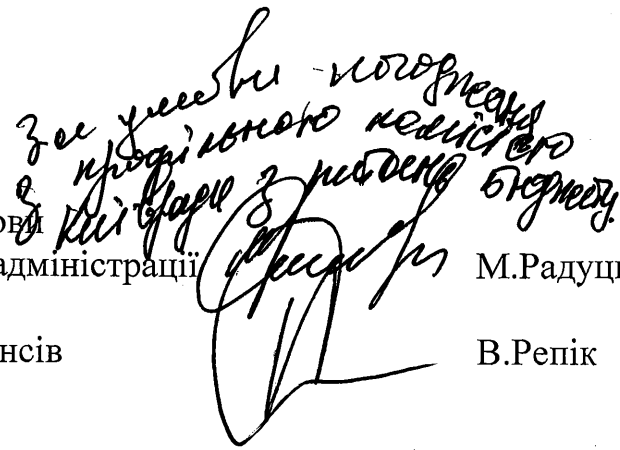 За умови погодження
з профільною комісією
Київради з питань бюджету.
ови
адміністрації М.Радуц
нсів В.Репік